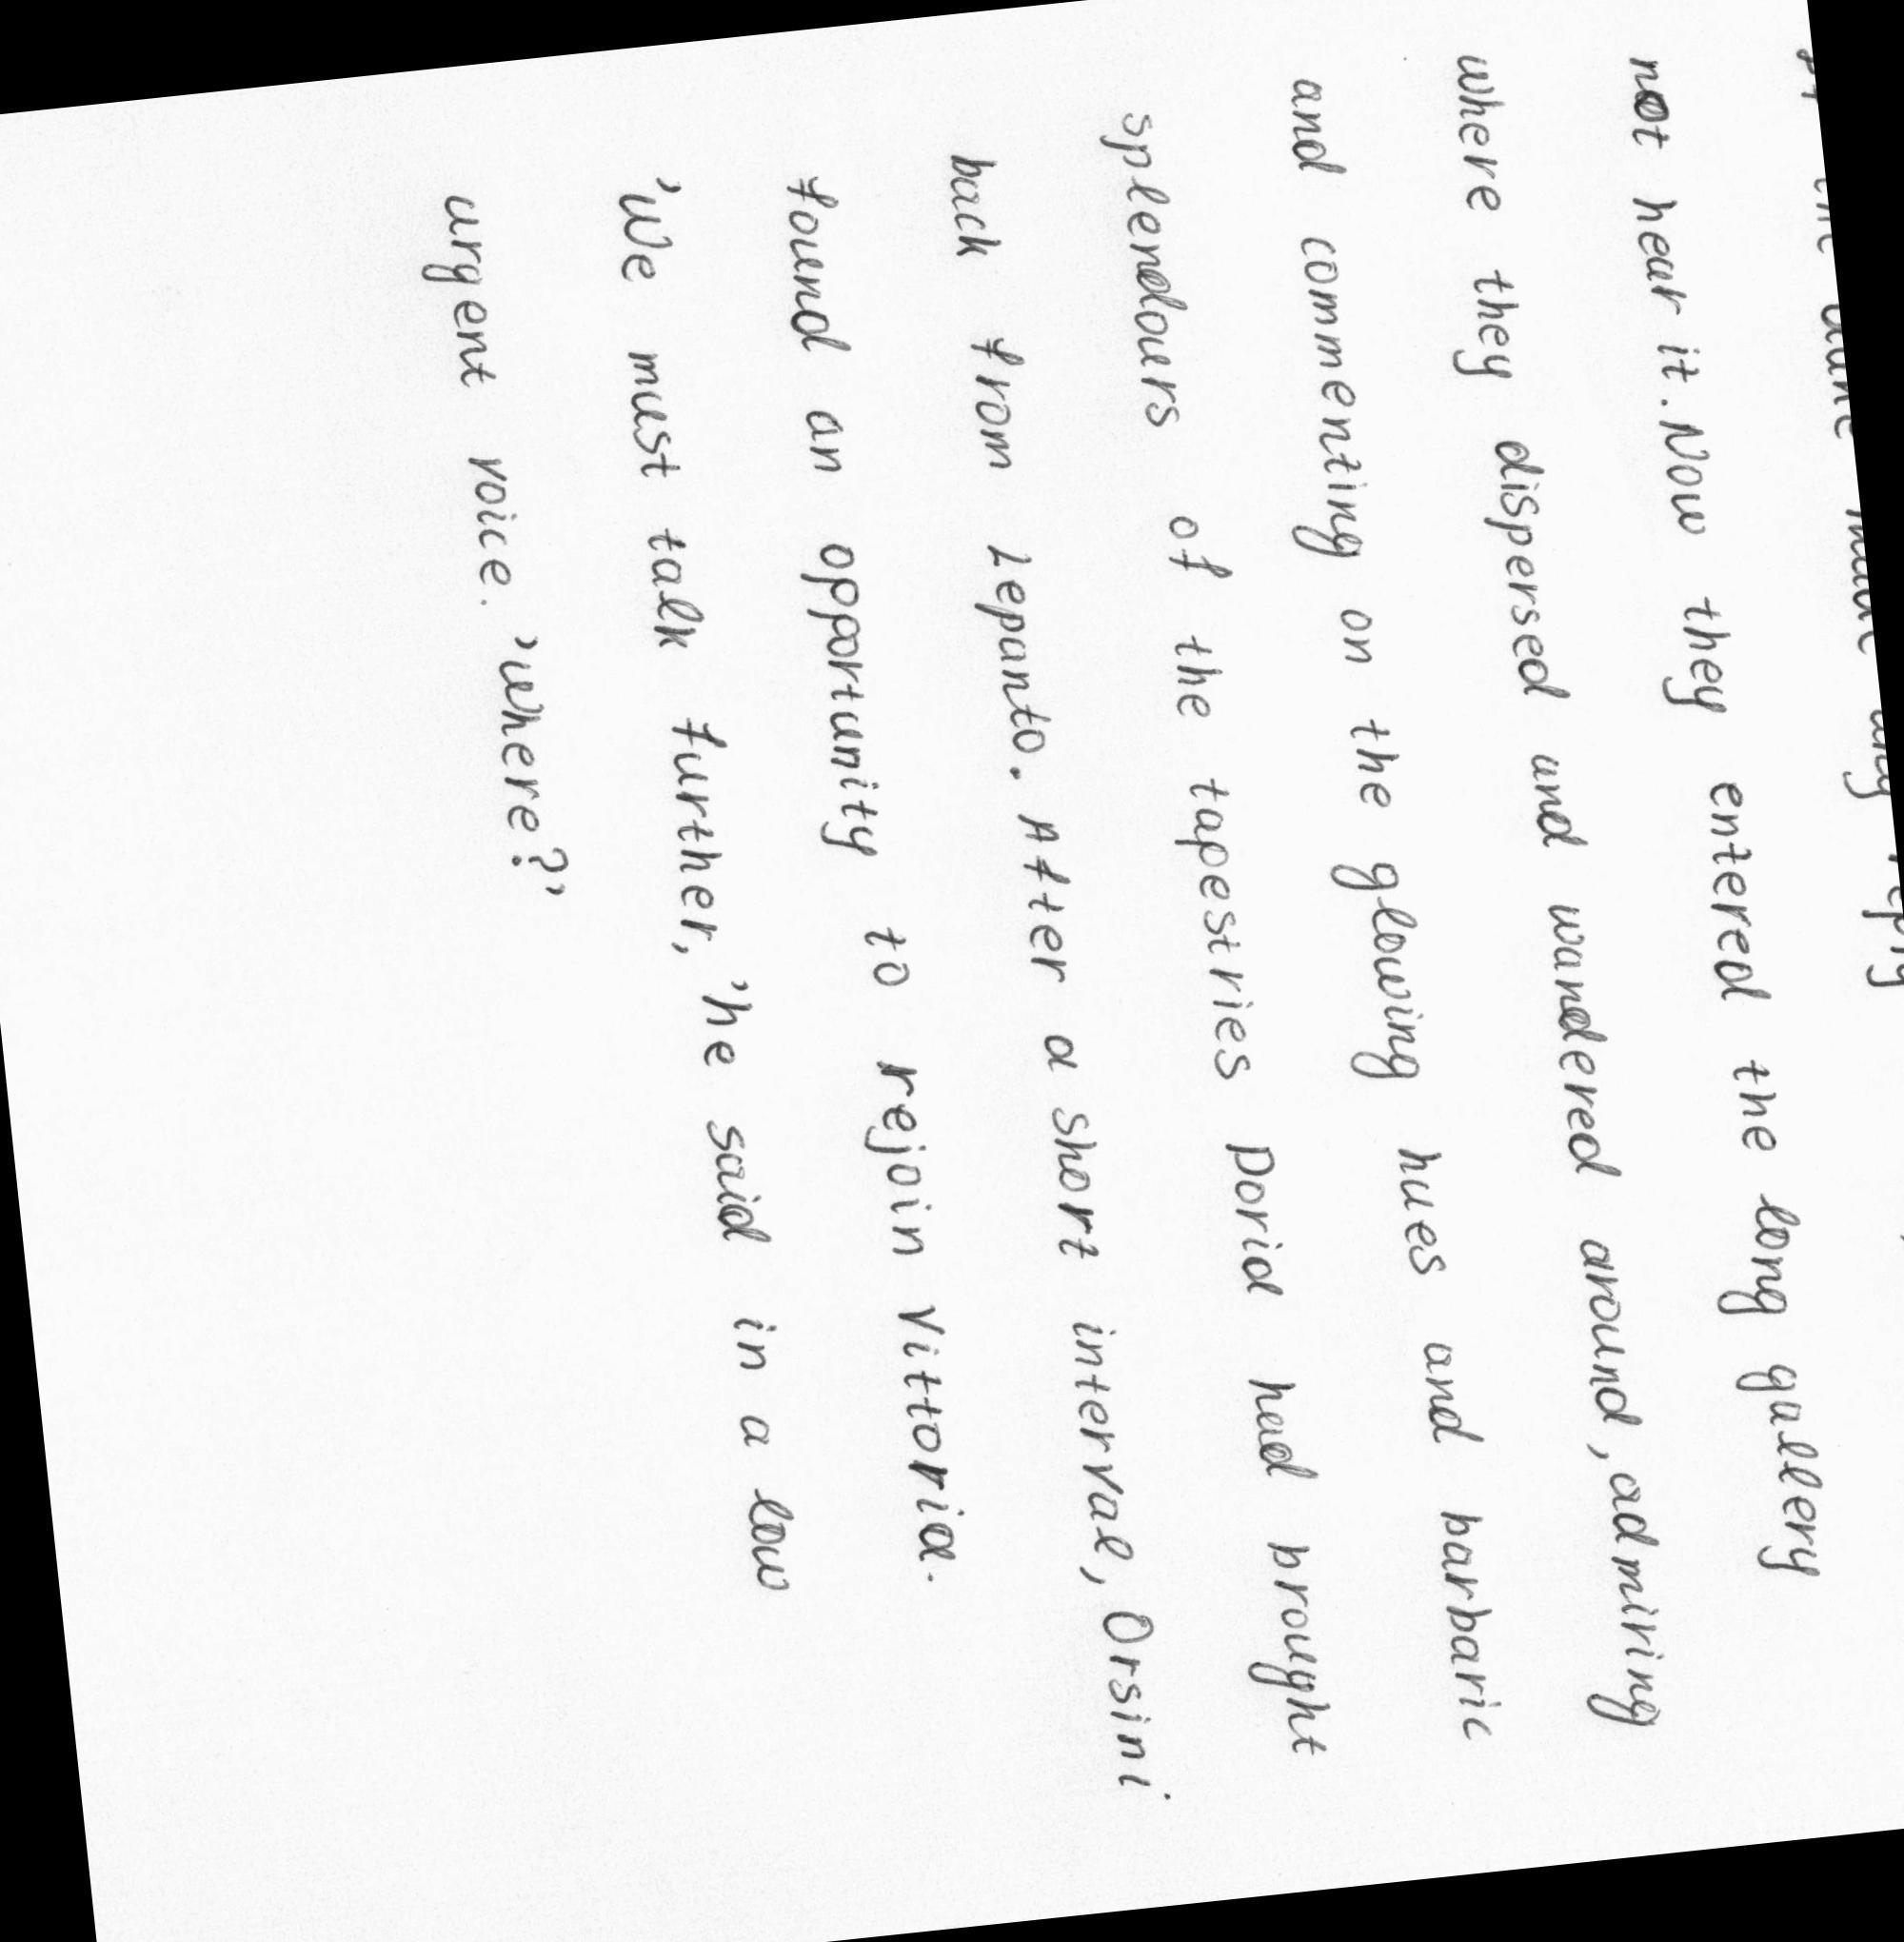 not hear it. Now they entered the long gallery
where they dispersed and wandered around, admiring
and commenting on the glowing hues and barbaric
splendours of the tapestries Doria had brought
back from Lepanto. After a short interval, Orsini
found an opportunity to rejoin Vittoria.
'We must talk further,' he said in a low
urgent voice. 'Where?'